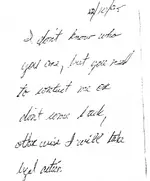 I don't know who
you are, but you need
to contact me or
don't come back,
otherwise I will take
legal action.